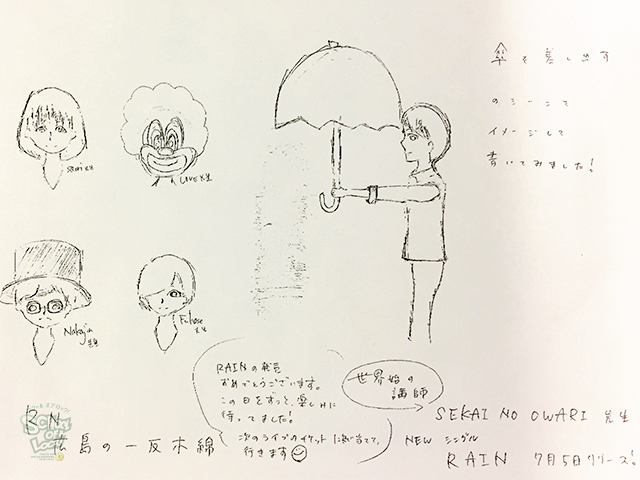 傘を差し出す
のシーンて
イメージして
書いてみました!
Saori先生
LOVE先生
Nakajin
先生
Fukase
先生
RAINの発売
おめでとうございます。
この日をずっと、楽しみに
待ってました!
次のライブのチケット
当てて、
行きます
世界始の
講師
SEKAI NO OWARI 先生
NEW シングル
RAIN 7月5日リリース!
RN
広島の一反木綿
SCHOOL OF LOCK!